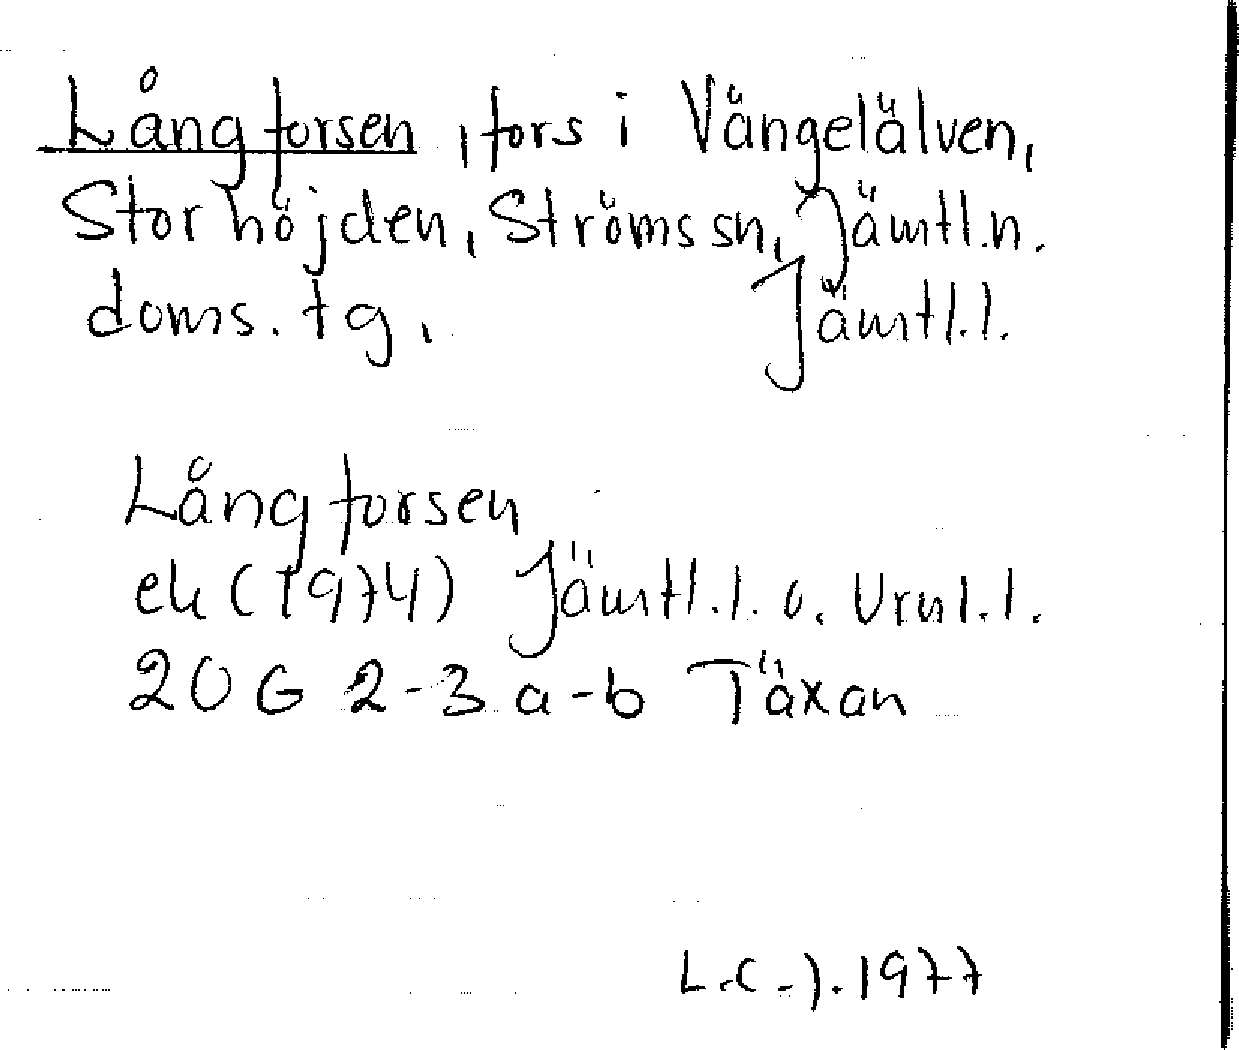 Långforsen, fors i Vängelälven,
Storhöjden, Ströms sn, Jämtl.n.
doms. tg, Jämtl.l.
Långforsen
ek (1974) Jämtl.l. o. Vrnl.l.
20 G 2-3 a-b Täxan
L.C-J. 1977